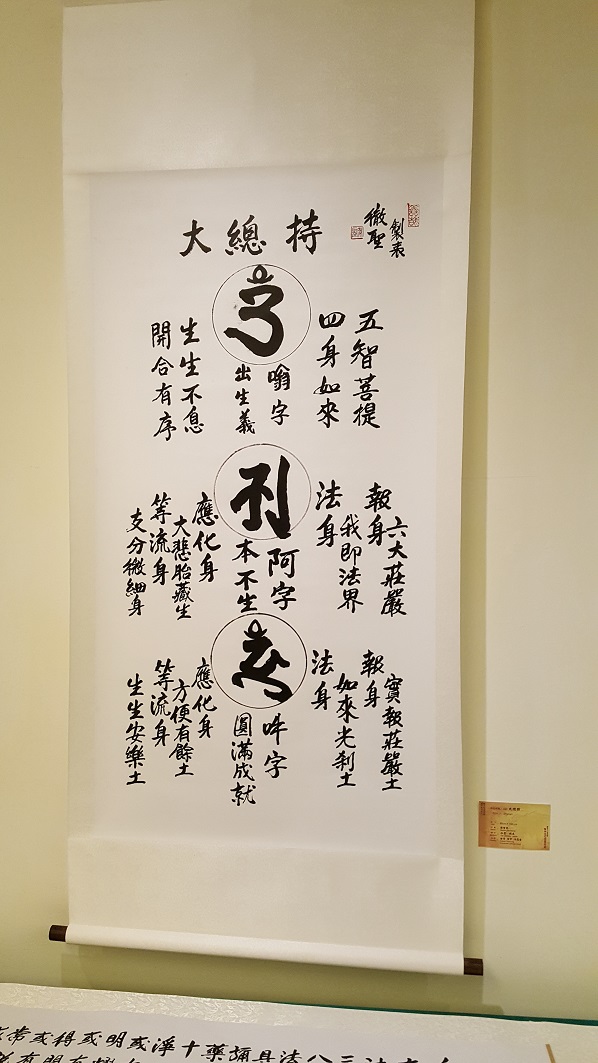 大總持
製表
徹聖
五智菩提
四身如來
嗡字
出生義
生生不息
開合有序
報身
六大莊嚴
法身
我即法界
阿字
本不生
應化身
大悲胎藏生
等流身
支分微細身
報身
實報莊嚴土
法身
如來光剎土
吽字
圓滿成就
應化身
方便有餘土
等流身
生生安樂土
常或得或明或淨十藥